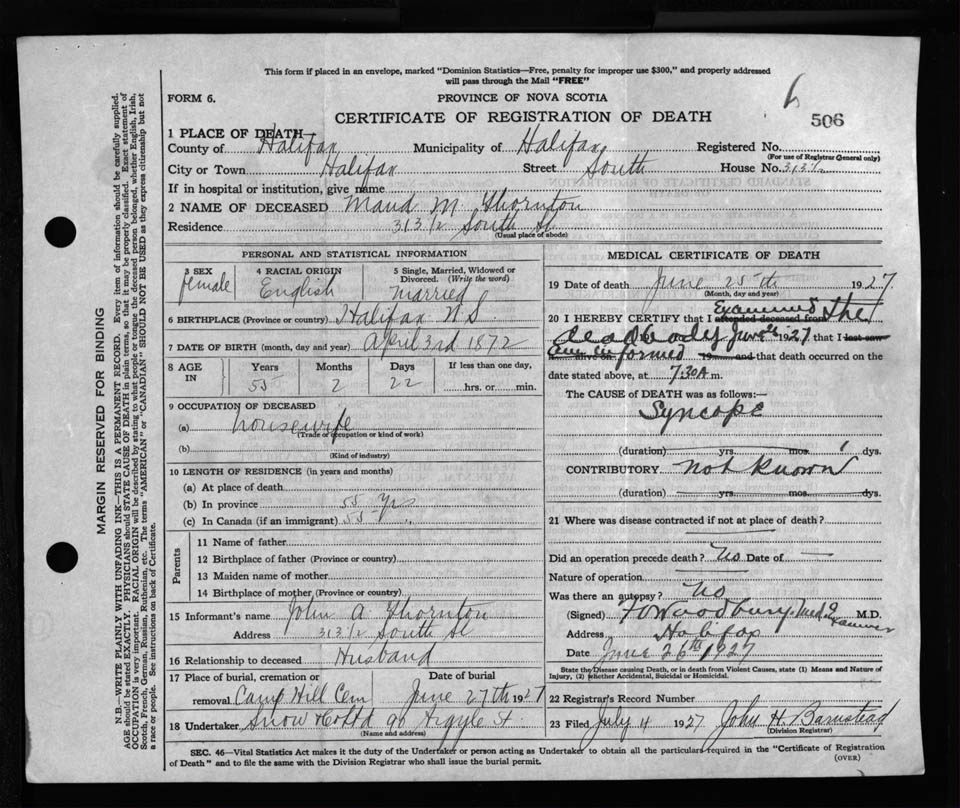 This form if placed in an envelope, marked "Dominion Statistics—Free, penalty for improper use $300," and properly addressed
will pass through the Mail "FREE"
FORM 6.
PROVINCE OF NOVA SCOTIA
6
506
CERTIFICATE OF REGISTRATION OF DEATH
1 PLACE OF DEATH—
County of Halifax Municipality of Halifax Registered No.
(For use of Registrar General only)
City or Town Halifax Street South House No. 313½
If in hospital or institution, give name
2 NAME OF DECEASED Maud M. Thornton
Residence 313½ South St.
(Usual place of abode)
PERSONAL AND STATISTICAL INFORMATION
3 SEX 4 RACIAL ORIGIN 5 Single, Married, Widowed or
Divorced. (Write the word)
female English Married
6 BIRTHPLACE (Province or country) Halifax N.S.
7 DATE OF BIRTH (month, day and year) April 3rd 1872
8 AGE IN Years Months Days If less than one day,
55 2 22 hrs. or min.
9 OCCUPATION OF DECEASED
(a) housewife
(Trade or occupation or kind of work)
(b)
(Kind of industry)
10 LENGTH OF RESIDENCE (in years and months)
(a) At place of death
(b) In province 55 yrs
(c) In Canada (if an immigrant) 55
Parents
11 Name of father
12 Birthplace of father (Province or country)
13 Maiden name of mother
14 Birthplace of mother (Province or country)
15 Informant's name John A Thornton
Address 313½ South St
16 Relationship to deceased Husband
17 Place of burial, cremation or Date of burial
removal Camp Hill Cem June 27th 1927
18 Undertaker Snow & Co Ltd 90 Argyle St.
(Name and address)
MEDICAL CERTIFICATE OF DEATH
19 Date of death June 25th 1927
(Month, day and year)
20 I HEREBY CERTIFY that I attended deceased from Examined the
dead body June 1927, that I last saw
informed 19 and that death occurred on the
date stated above, at 7.30 A m.
The CAUSE of DEATH was as follows:—
Syncope
(duration) yrs. mos. 1 dys.
CONTRIBUTORY not known
(duration) yrs. mos. dys.
21 Where was disease contracted if not at place of death?
Did an operation precede death? No Date of —
Nature of operation
Was there an autopsy? No
(Signed) Woodbury Med Examiner M.D.
Address Halifax
Date June 26th 1927
State the Disease causing Death, or in death from Violent Causes, state (1) Means and Nature of
Injury, (2) whether Accidental, Suicidal or Homicidal.
22 Registrar's Record Number
23 Filed July 4 1927 John H. Barnstead
(Division Registrar)
SEC. 46—Vital Statistics Act makes it the duty of the Undertaker or person acting as Undertaker to obtain all the particulars required in the "Certificate of Registration
of Death" and to file the same with the Division Registrar who shall issue the burial permit.
(OVER)
MARGIN RESERVED FOR BINDING
N.B.—WRITE PLAINLY WITH UNFADING INK—THIS IS A PERMANENT RECORD. Every item of information should be carefully supplied.
AGE should be stated EXACTLY. PHYSICIANS should STATE CAUSE OF DEATH in plain terms, so that it may be properly classified. Exact statement of
OCCUPATION is very important. RACIAL ORIGIN will be described by stating to what people or tongue the deceased person belonged, whether English, Irish,
Scotch, French, German, Russian, Ruthenian, etc. The terms "AMERICAN" or "CANADIAN" SHOULD NOT BE USED as they express citizenship but not
a race or people. See instructions on back of Certificate.